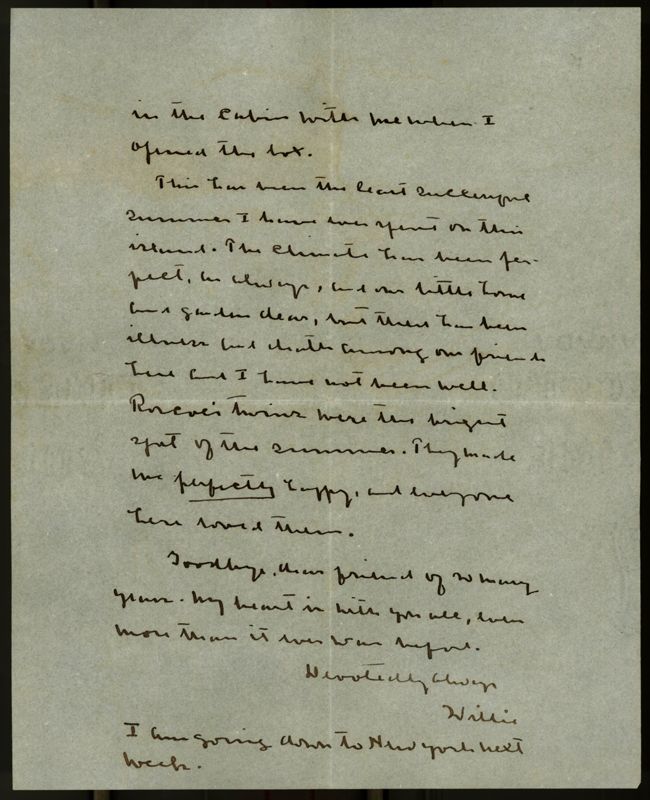 in the cabin with me when I
opened the box.
This has been the least successful
summer I have ever spent on this
island. The climate has been per-
fect, as always, and our little home
and garden dear, but there has been
illness and death among our friends
here and I have not been well.
Roscoe's twins were the bright
spot of the summer. They made
me perfectly happy, and everyone
here loved them.
Goodbye, dear friend of so many
years. My heart is with you all, even
more than it ever was before.
Devotedly always
Willie
I am going down to New York next
week.